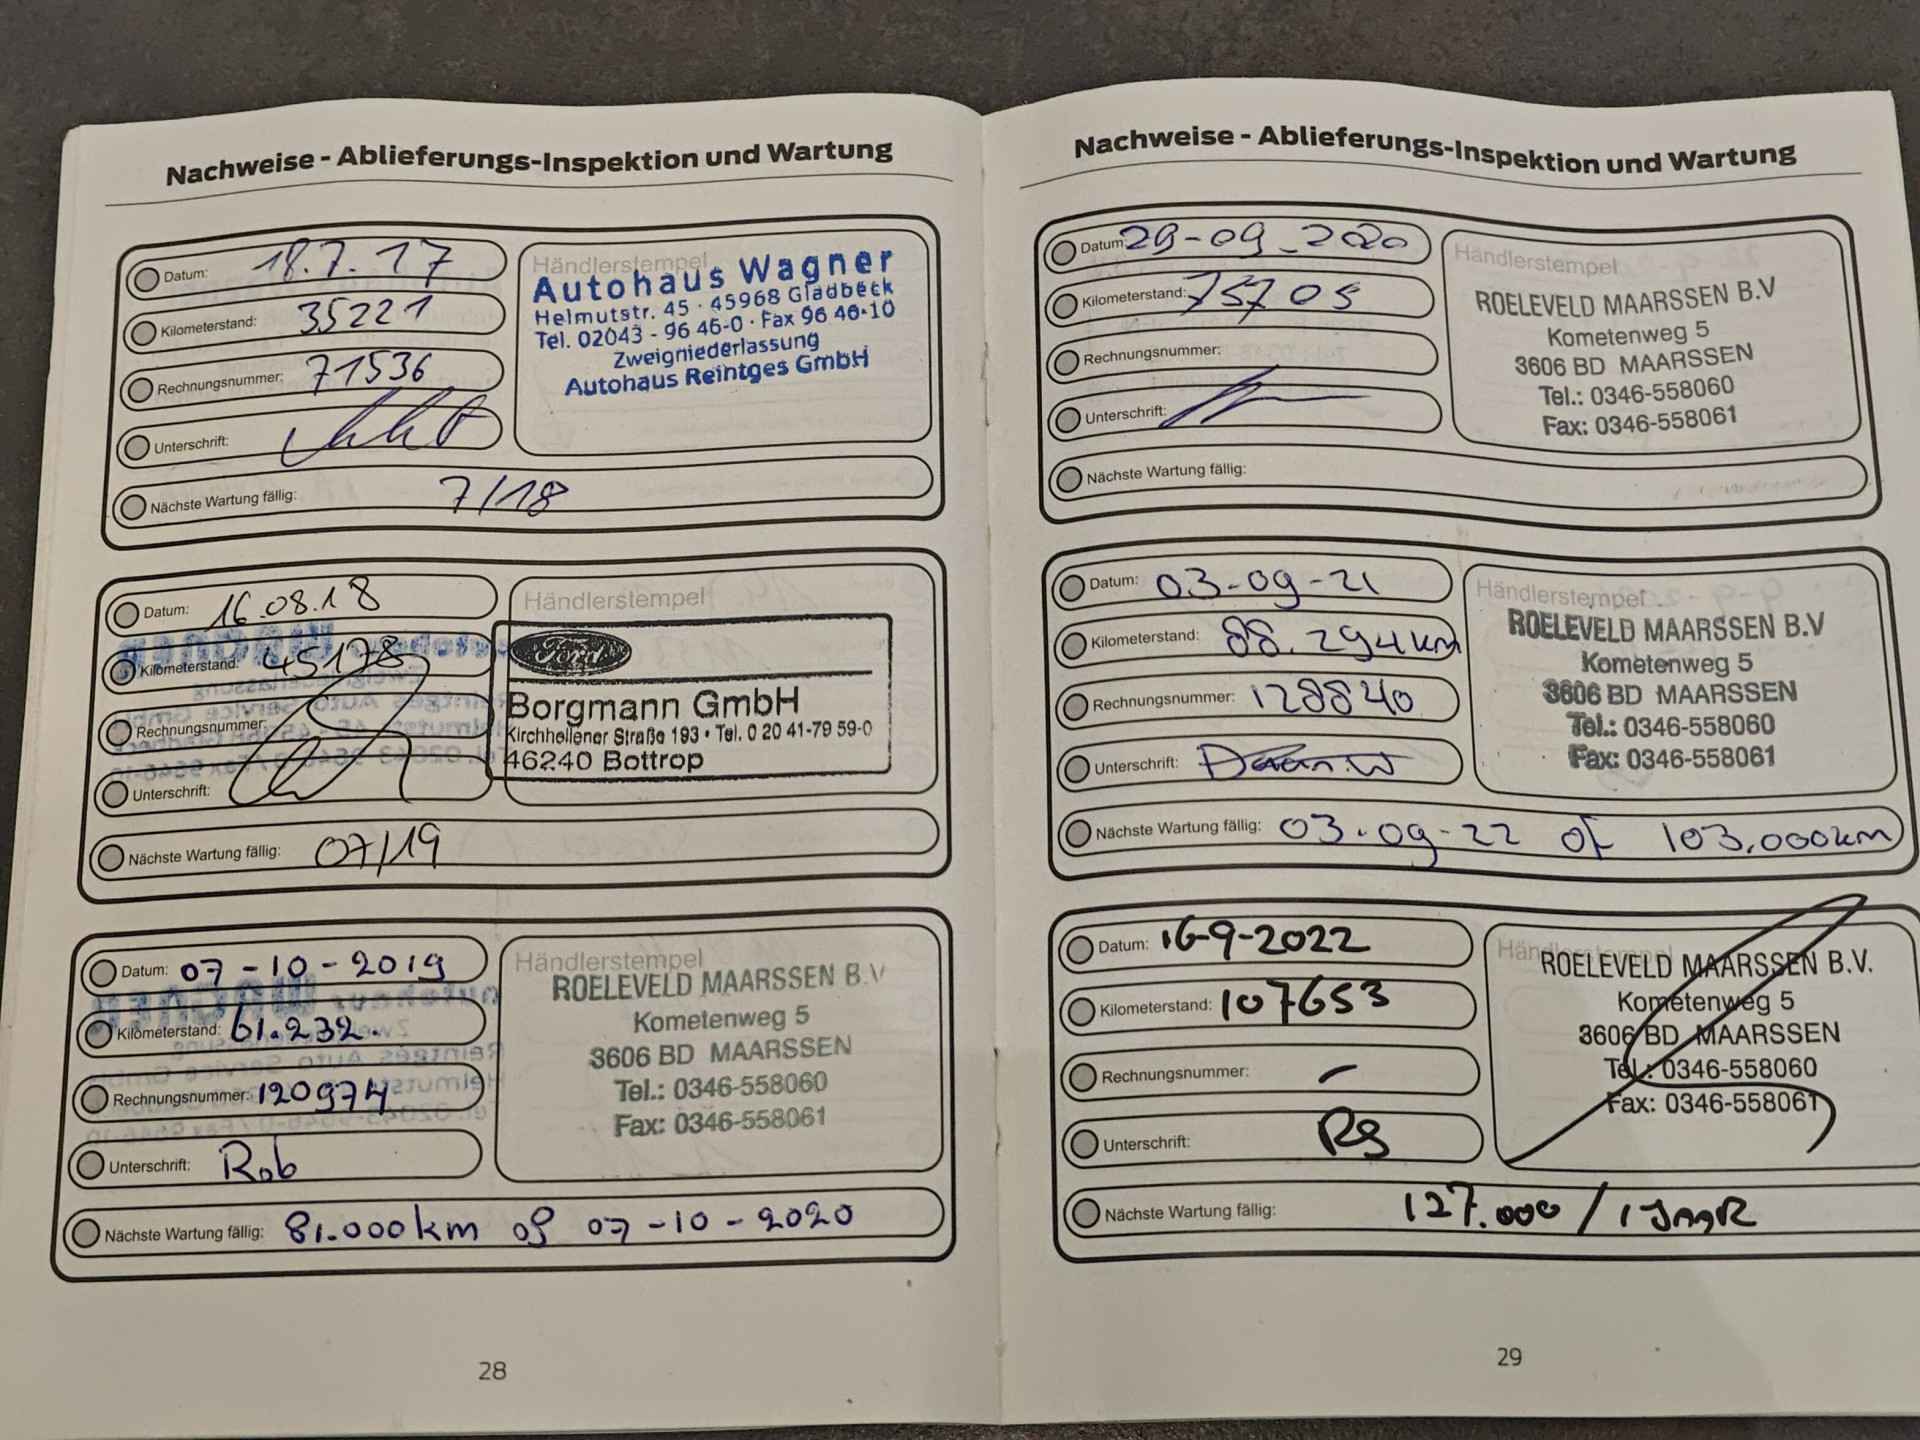 Nachweise - Ablieferungs-Inspektion und Wartung
Datum: 18.7.17
Kilometerstand: 35221
Rechnungsnummer: 71536
Unterschrift:
Nächste Wartung fällig: 7/18
Händlerstempel
Autohaus Wagner
Helmutstr. 45 · 45968 Gladbeck
Tel. 02043 - 96 46-0 · Fax 96 46-10
Zweigniederlassung
Autohaus Reintges GmbH
Datum: 16.08.18
Kilometerstand: 45178
Rechnungsnummer:
Unterschrift:
Nächste Wartung fällig: 07/19
Händlerstempel
Ford
Borgmann GmbH
Kirchhellener Straße 193 · Tel. 0 20 41-79 59-0
46240 Bottrop
Datum: 07-10-2019
Kilometerstand: 61.232.
Rechnungsnummer: 120974
Unterschrift: Rob
Nächste Wartung fällig: 81.000km of 07-10-2020
Händlerstempel
ROELEVELD MAARSSEN B.V
Kometenweg 5
3606 BD MAARSSEN
Tel.: 0346-558060
Fax: 0346-558061
28
Nachweise - Ablieferungs-Inspektion und Wartung
Datum: 29-09-2020
Kilometerstand: 75705
Rechnungsnummer:
Unterschrift:
Nächste Wartung fällig:
Händlerstempel
ROELEVELD MAARSSEN B.V
Kometenweg 5
3606 BD MAARSSEN
Tel.: 0346-558060
Fax: 0346-558061
Datum: 03-09-21
Kilometerstand: 88.294km
Rechnungsnummer: 128840
Unterschrift:
Nächste Wartung fällig: 03-09-22 of 103.000km
Händlerstempel
ROELEVELD MAARSSEN B.V
Kometenweg 5
3606 BD MAARSSEN
Tel.: 0346-558060
Fax: 0346-558061
Datum: 16-9-2022
Kilometerstand: 107653
Rechnungsnummer: -
Unterschrift:
Nächste Wartung fällig: 127.000 / 1 JAAR
ROELEVELD MAARSSEN B.V.
Kometenweg 5
3606 BD MAARSSEN
Tel.: 0346-558060
Fax: 0346-558061
29